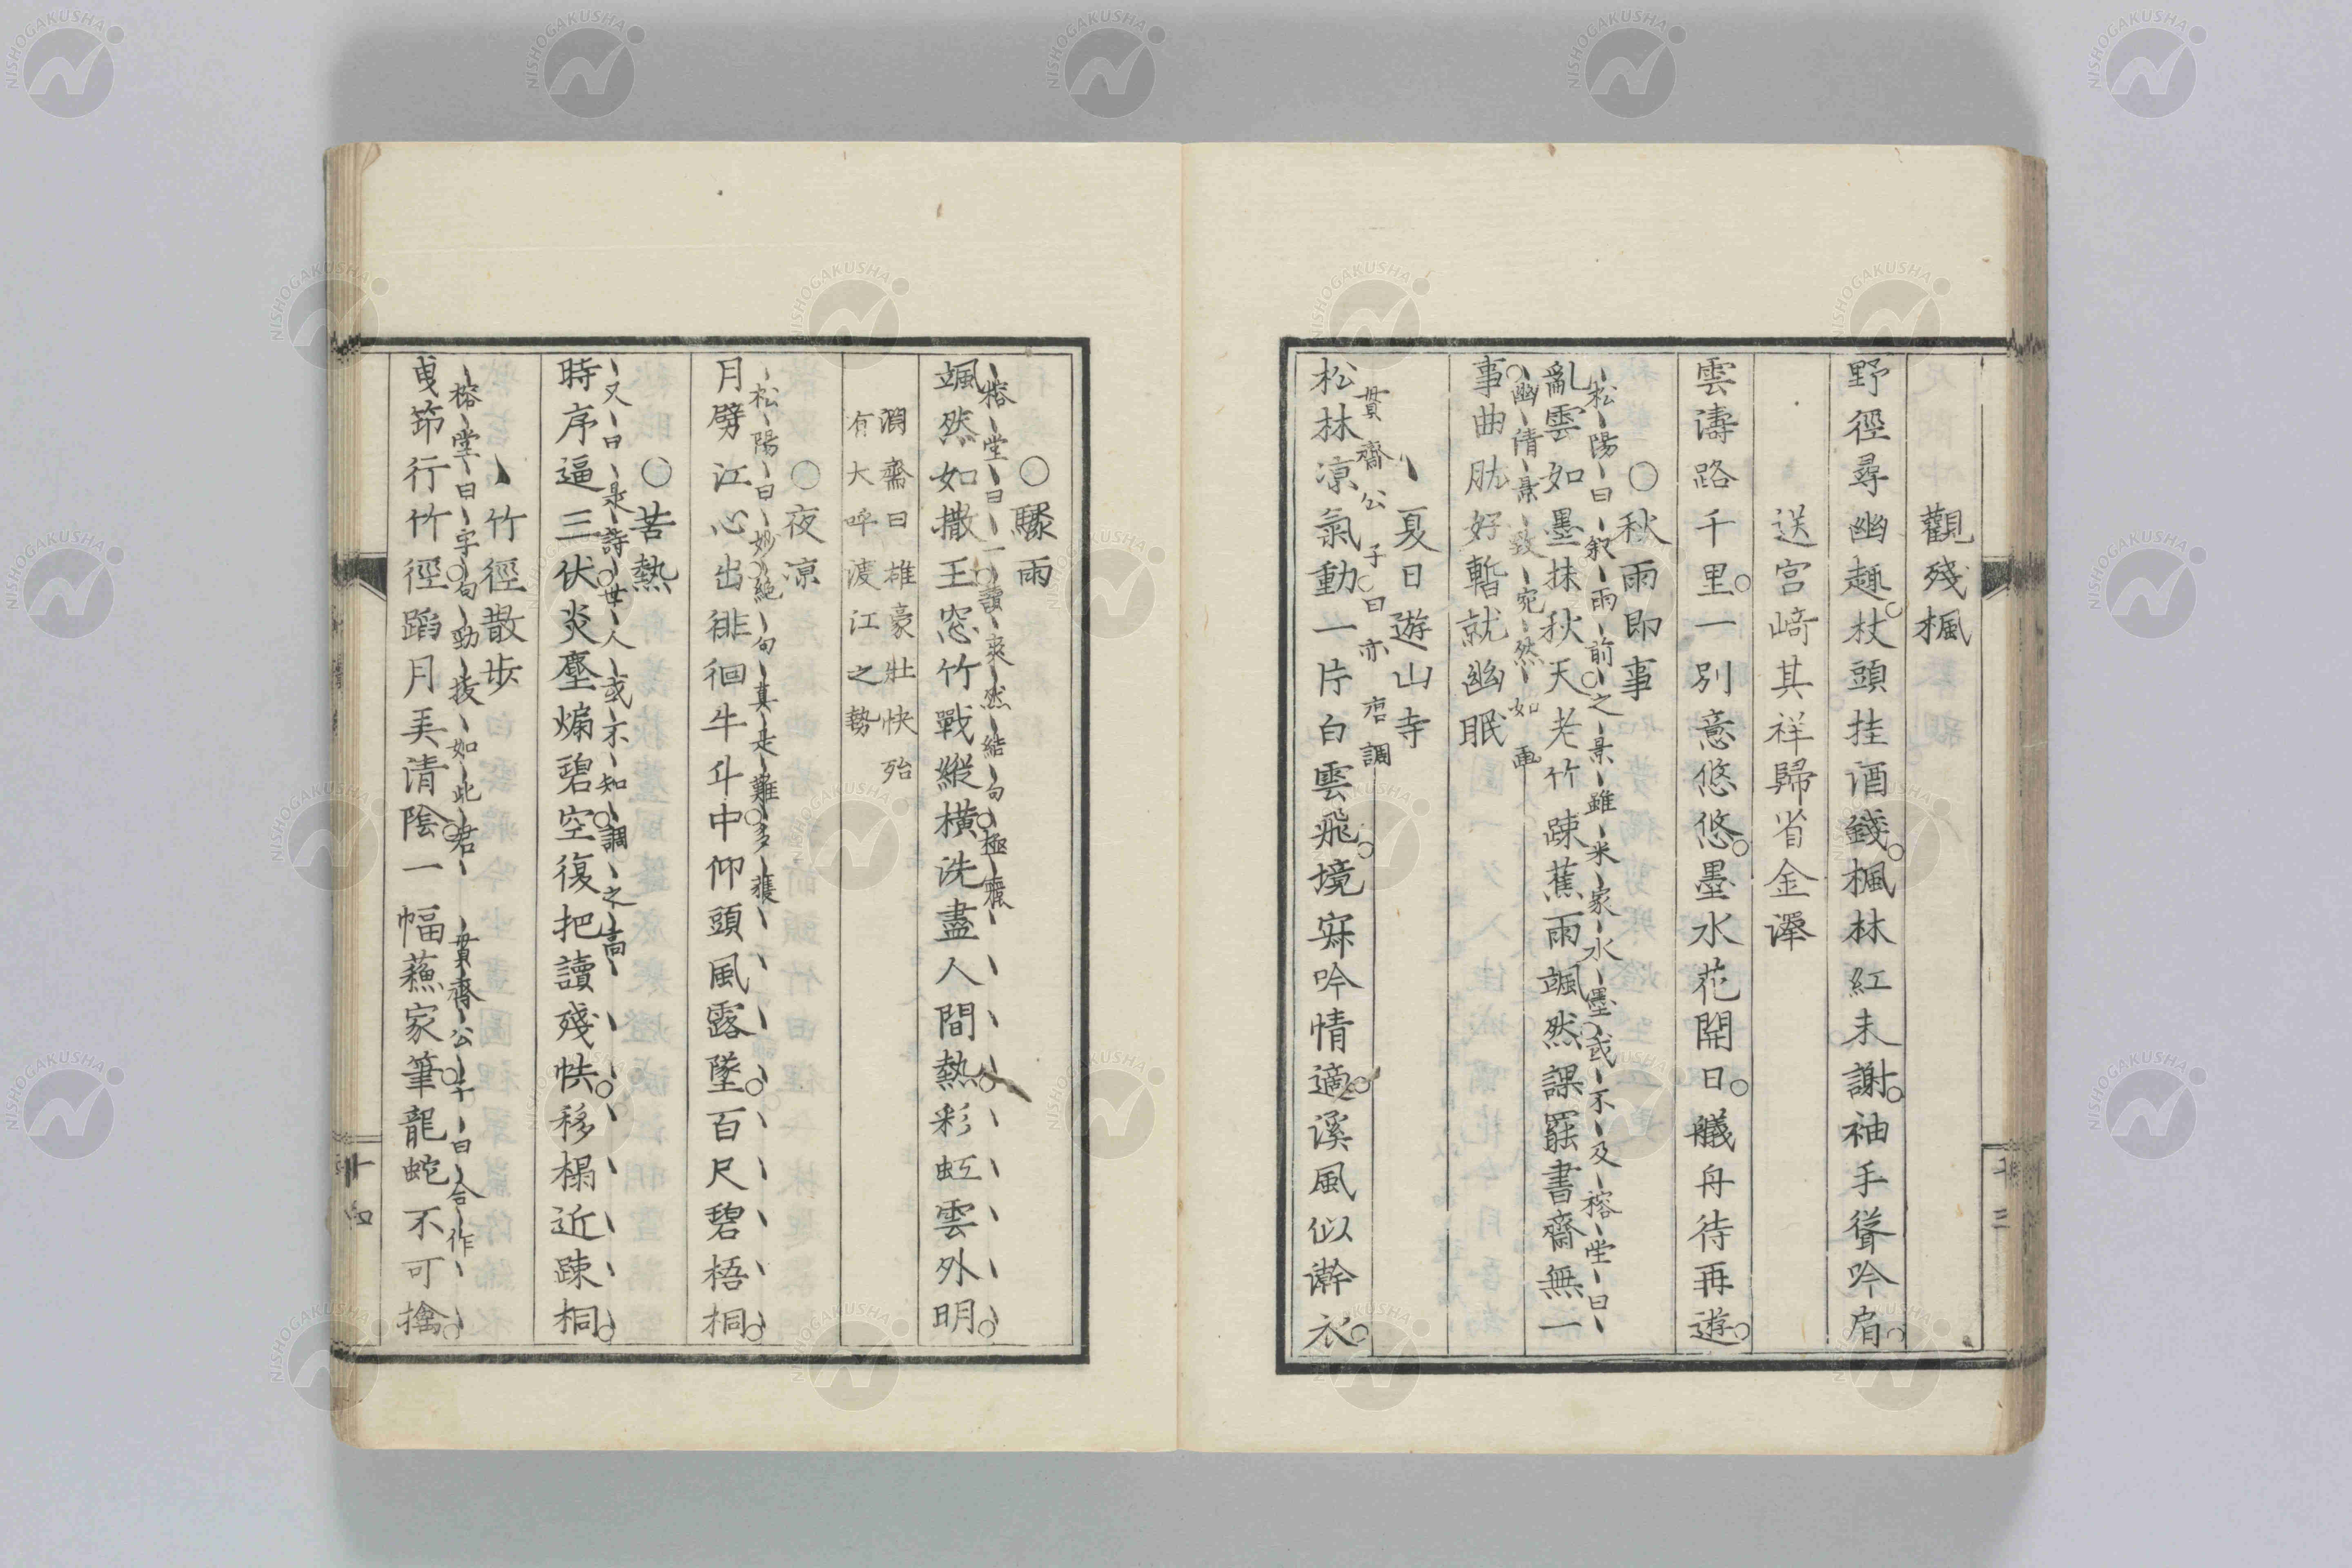 觀殘楓
野徑尋幽趣杖頭挂酒錢楓林紅未謝袖手聳吟肩
送宮﨑其祥歸省金澤
雲濤路千里一別意悠悠墨水花開日艤舟待再遊
○秋雨即事
松陽曰叙雨前之景雖米家水墨或不及榕堂曰
亂雲如墨抹秋天老竹踈蕉雨颯然課罷書齋無一
幽情景致宛然如画
事曲肱好暫就幽眠
夏日遊山寺
貫齋公子曰亦唐調
松林凉氣動一片白雲飛境寂吟情適溪風似澣衣
十三
○驟雨
榕堂曰一讀爽然結句極穠
颯然如撒玉窓竹戰縱橫洗盡人間熱彩虹雲外明
澗齋曰雄豪壮快殆
有大呼渡江之勢
○夜凉
松陽曰妙絕句真是難多獲
月劈江心出徘徊牛斗中仰頭風露墜百尺碧梧桐
○苦熱
又曰是詩世人或不知調之高
時序逼三伏炎塵煽碧空復把讀殘帙移榻近踈桐
竹徑散歩
榕堂曰字句勁拔如此君 貫齋公子曰合作
曳筇行竹徑蹈月美清陰一幅蘓家筆龍蛇不可擒
十四
NISHOGAKUSHA